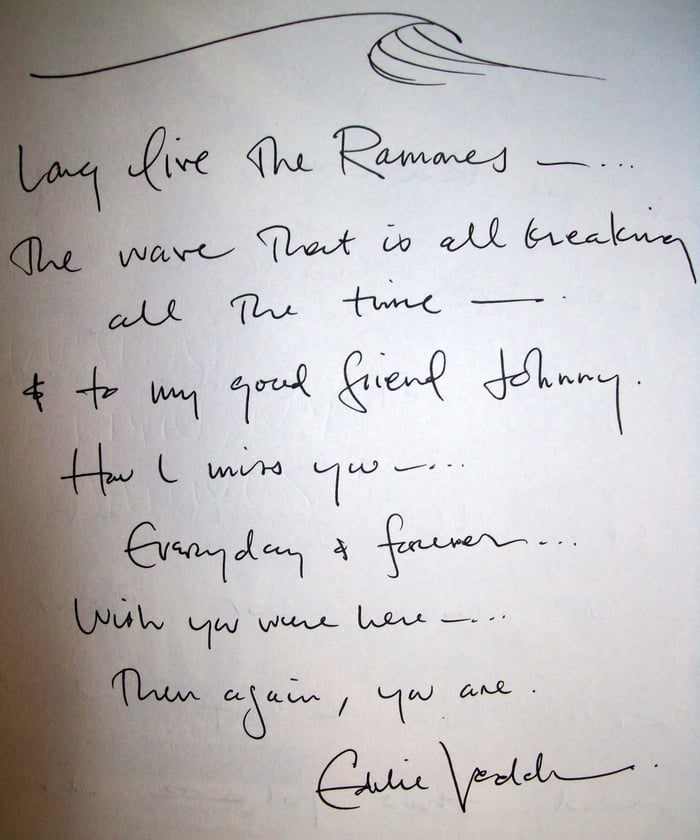 Long live The Ramones —...
The wave That is all breaking
all The time — .
& to my good friend Johnny.
How I miss you —...
Everyday & forever...
Wish you were here —...
Then again, you are.
Eddie Vedder.